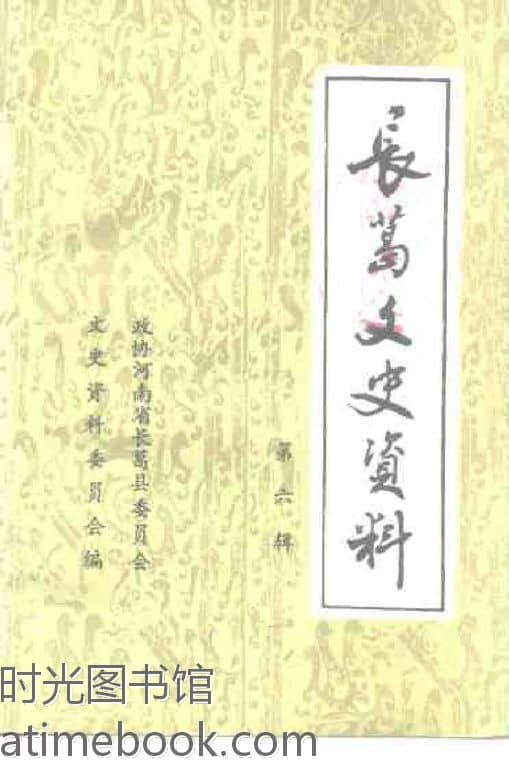 長葛文史資料
第六辑
政协河南省长葛县委员会
文史资料委员会编
时光图书馆
atimebook.com